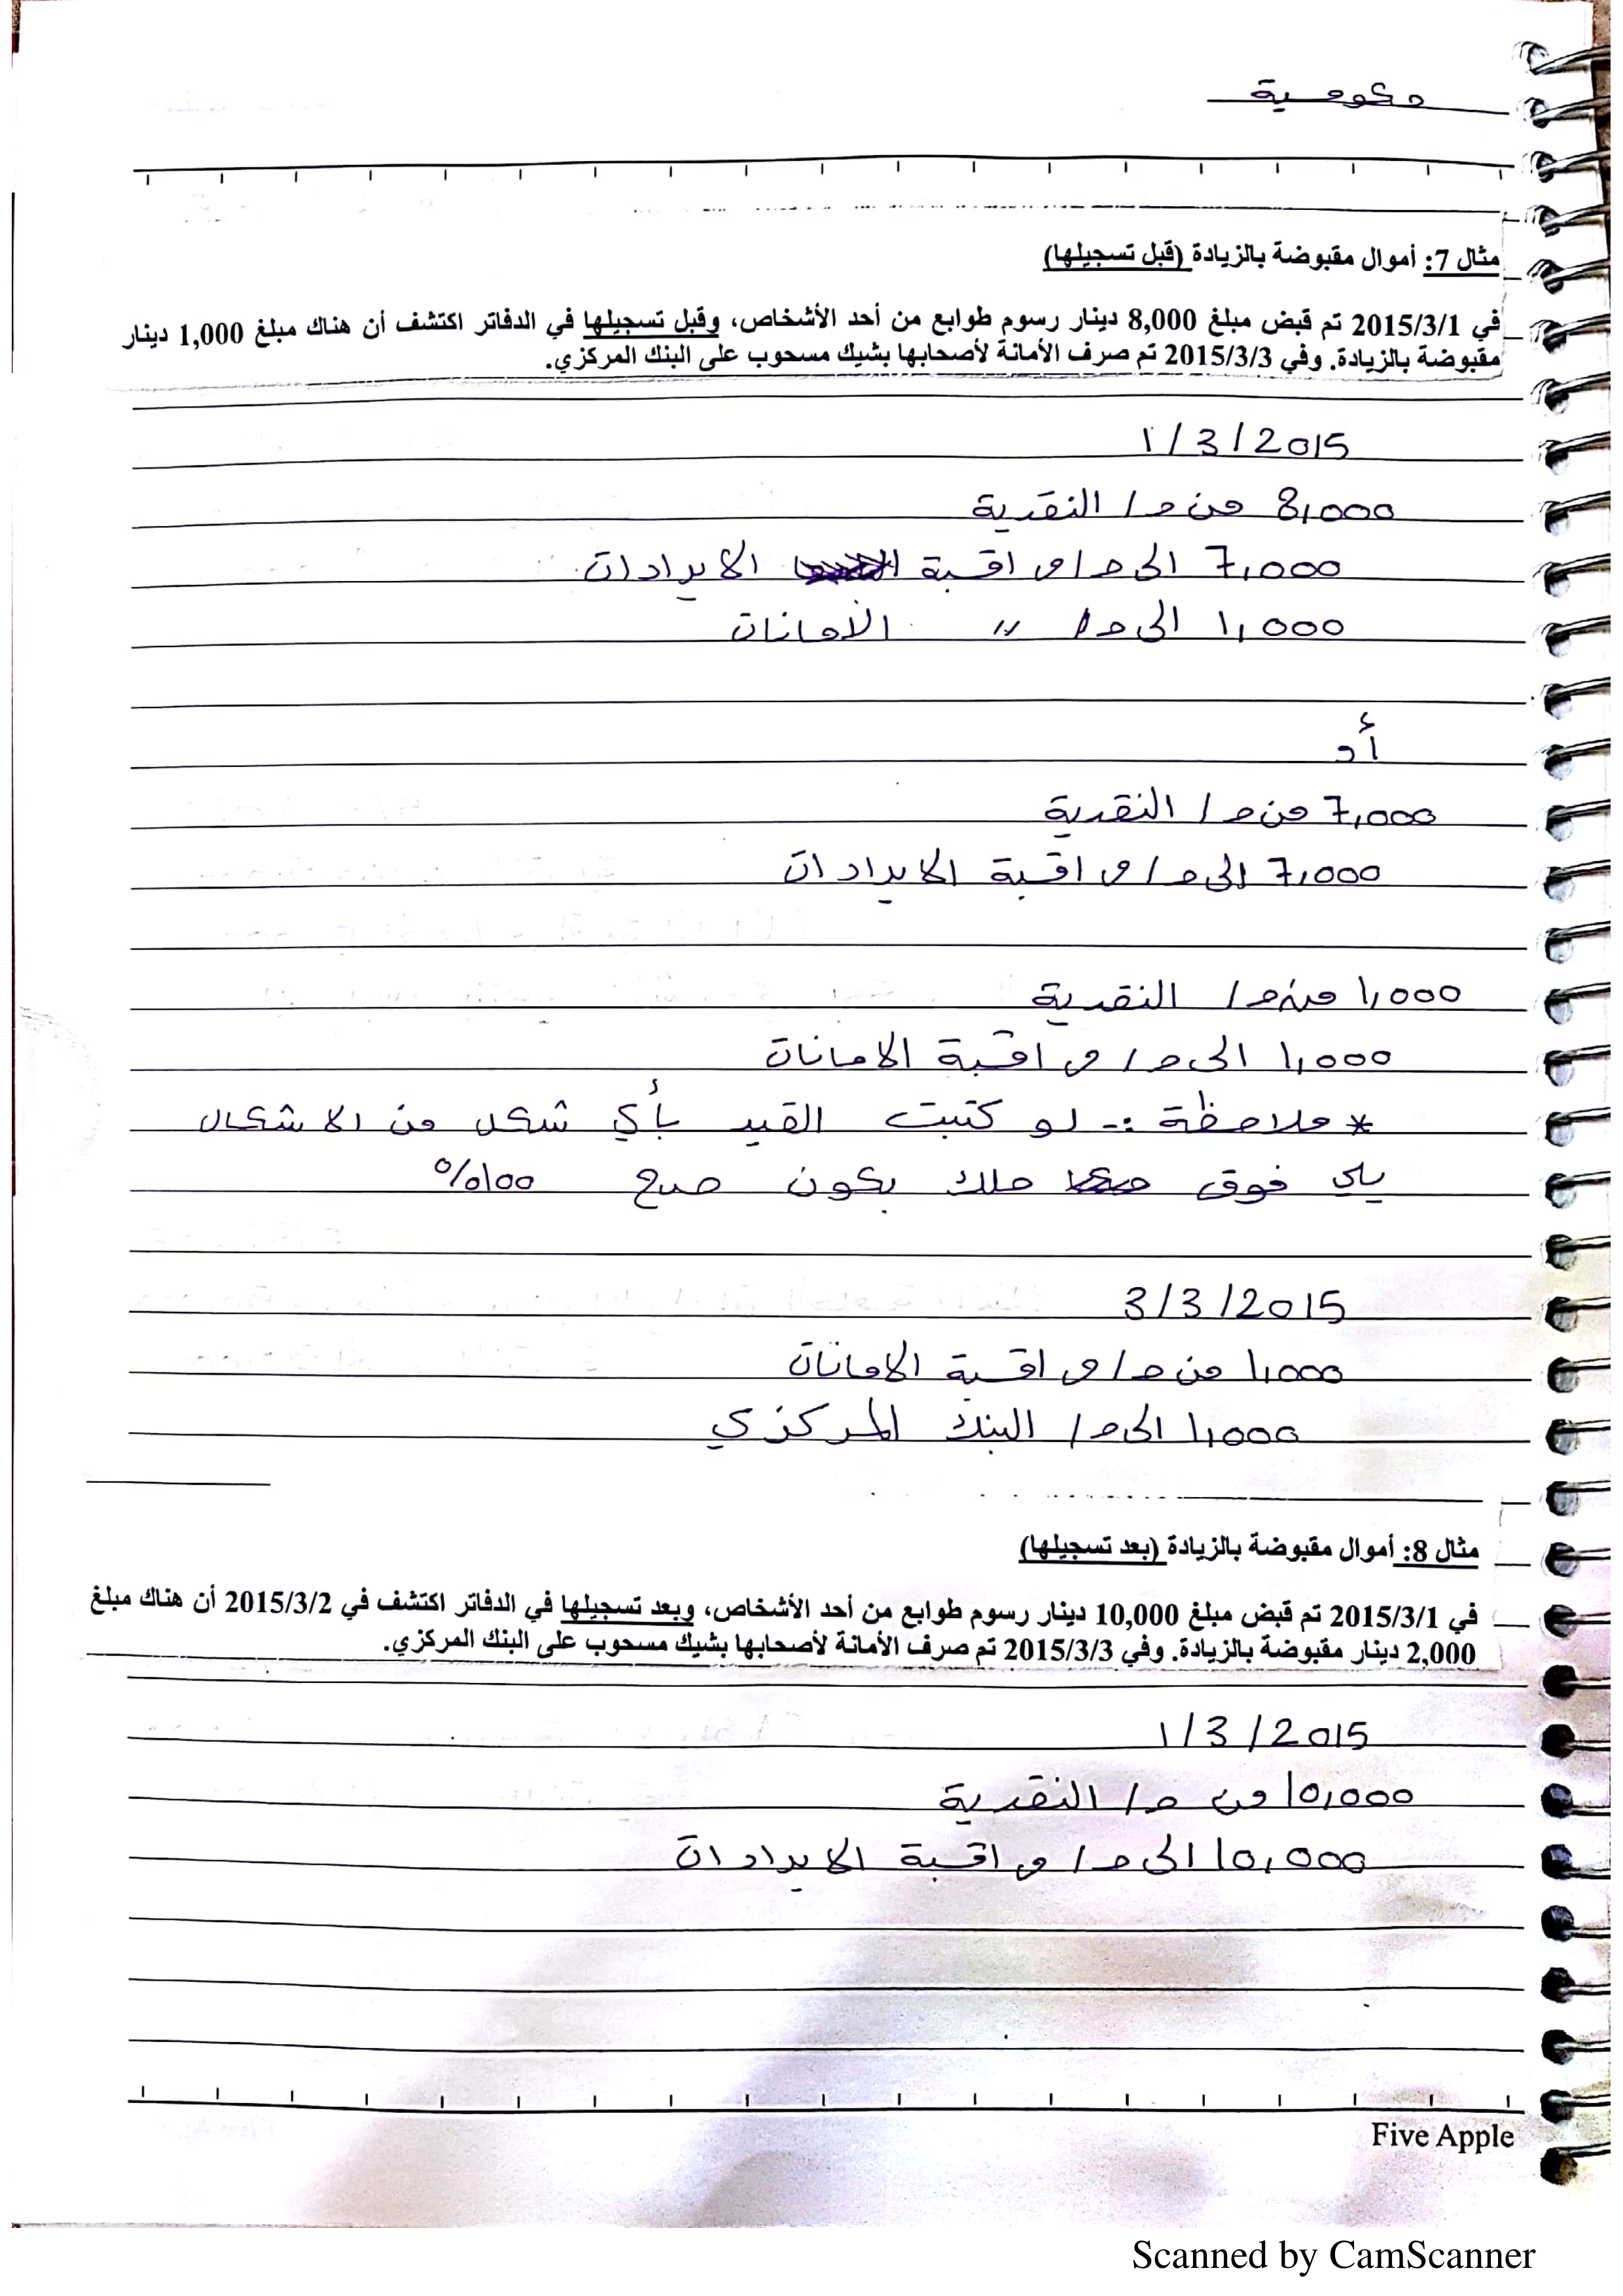 حكومية
مثال 7: أموال مقبوضة بالزيادة (قبل تسجيلها)
في 2015/3/1 تم قبض مبلغ 8,000 دينار رسوم طوابع من أحد الأشخاص، وقبل تسجيلها في الدفاتر اكتشف أن هناك مبلغ 1,000 دينار
مقبوضة بالزيادة. وفي 2015/3/3 تم صرف الأمانة لأصحابها بشيك مسحوب على البنك المركزي.
1/3/2015
8,000 من ح/ النقدية
7,000 الى ح/ مراقبة الايرادات
1,000 الى ح/ " الأمانات
أو
7,000 من ح/ النقدية
7,000 الى ح/ مراقبة الايرادات
1,000 من ح/ النقدية
1,000 الى ح/ مراقبة الامانات
* ملاحظة :- لو كتبت القيد بأي شكل من الاشكال
يلي فوق حلك بكون صح 100%
3/3/2015
1,000 من ح/ مراقبة الامانات
1,000 الى ح/ البنك المركزي
مثال 8: أموال مقبوضة بالزيادة (بعد تسجيلها)
في 2015/3/1 تم قبض مبلغ 10,000 دينار رسوم طوابع من أحد الأشخاص، وبعد تسجيلها في الدفاتر اكتشف في 2015/3/2 أن هناك مبلغ
2,000 دينار مقبوضة بالزيادة. وفي 2015/3/3 تم صرف الأمانة لأصحابها بشيك مسحوب على البنك المركزي.
1/3/2015
10,000 من ح/ النقدية
10,000 الى ح/ مراقبة الايرادات
Five Apple
Scanned by CamScanner